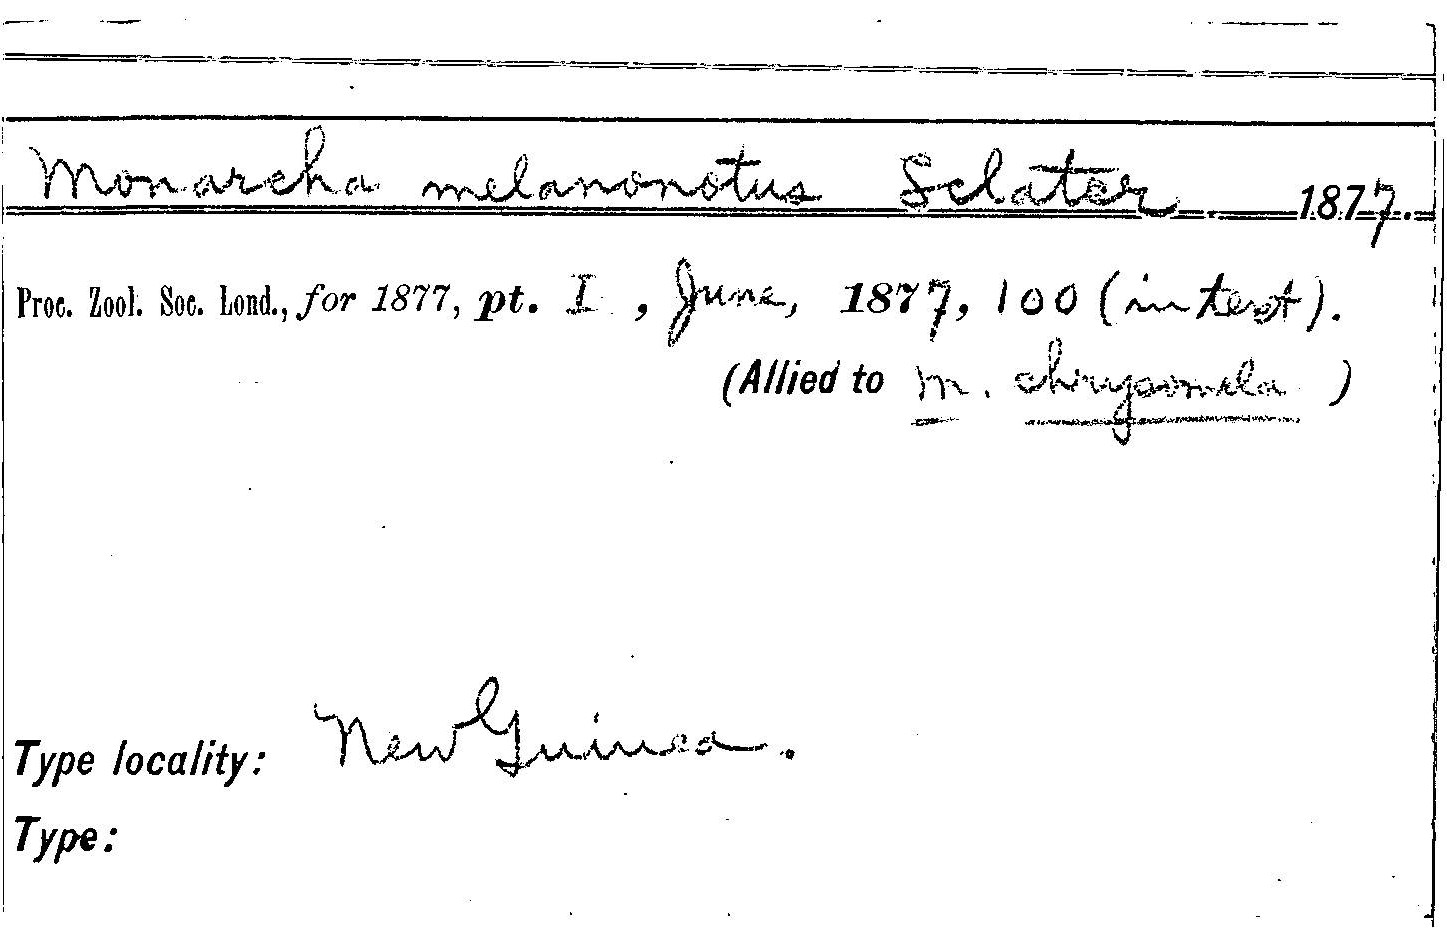 Monarcha melanonotus Sclater 1877.
Proc. Zool. Soc. Lond., for 1877, pt. I, June, 1877, 100 (in text).
(Allied to M. chrysomela)
Type locality: New Guinea.
Type: